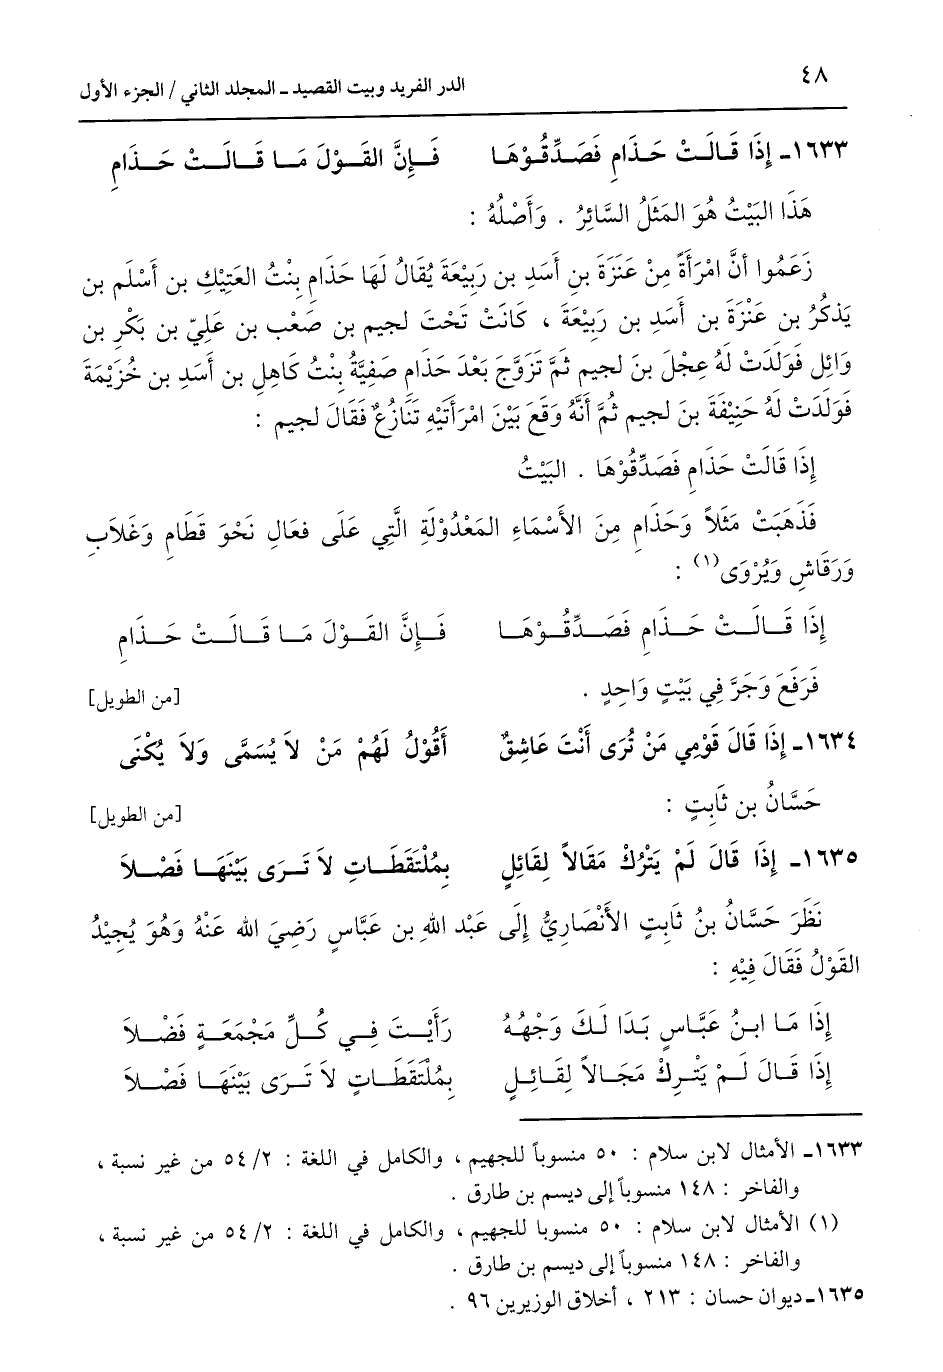 ٤٨
الدر الفريد وبيت القصيد ـ المجلد الثاني / الجزء الأول
١٦٣٣ـ إِذَا قَالَتْ حَذَامِ فَصَدِّقُوْهَا فَإِنَّ القَوْلَ مَا قَالَتْ حَذَامِ
هَذَا البَيْتُ هُوَ المَثَلُ السَّائِرُ . وَأَصْلُهُ :
زَعَمُوا أنَّ امْرَأَةً مِنْ عَنَزَةَ بنِ أَسَدِ بن رَبِيْعَةَ يُقَالُ لَهَا حَذَامِ بِنْتُ العَتِيْكِ بن أَسْلَم بن
يَذكُرُ بن عَنْزَةَ بن أَسَدِ بن رَبِيْعَةَ ، كَانَتْ تَحْتَ لجيم بن صَعْب بن عَلِيّ بن بَكْرِ بن
وَائِل فَوَلَدَتْ لَهُ عِجْلَ بنَ لجيم ثمَّ تَزَوَّجَ بَعْدَ حَذَامِ صَفِيَّةُ بِنْتُ كَاهِلِ بن أَسَدِ بن خُزَيْمَةَ
فَوَلَدَتْ لَهُ حَنِيْفَةَ بنَ لجيم ثُمَّ أَنَّهُ وَقَعَ بَيْنَ امْرَأَتَيْهِ تَنَازُعٌ فَقَالَ لجيم :
إِذَا قَالَتْ حَذَامِ فَصَدِّقُوْهَا . البَيْتُ
فَذَهَبَتْ مَثَلاً وَحَذَامِ مِنَ الأَسْمَاءِ المَعْدُوْلَةِ الَّتِي عَلَى فعَالِ نَحْوَ قَطَامِ وَغَلَابِ
وَرَقَاشِ وَيُرْوَى(١) :
إِذَا قَالَتْ حَذَامِ فَصَدِّقُوْهَا فَإِنَّ القَوْلَ مَا قَالَتْ حَذَامِ
فَرَفَعَ وَجَرَّ فِي بَيْتٍ وَاحِدٍ .
[من الطويل]
١٦٣٤ـ إِذَا قَالَ قَوْمِي مَنْ تُرَى أَنْتَ عَاشِقٌ أَقُوْلُ لَهُمْ مَنْ لاَ يُسَمَّى وَلاَ يُكْنَى
حَسَّانُ بن ثَابِتٍ :
[من الطويل]
١٦٣٥ـ إِذَا قَالَ لَمْ يَتْرُكْ مَقَالاً لِقَائِلٍ بِمُلْتَقَطَاتِ لاَ تَرَى بَيْنَهَا فَصْلاَ
نَظَرَ حَسَّانُ بنُ ثَابِتٍ الأَنْصَارِيُّ إِلَى عَبْد اللهِ بن عَبَّاسٍ رَضِيَ الله عَنْهُ وَهُوَ يُجِيْدُ
القَوْلُ فَقَالَ فِيْهِ :
إِذَا مَا ابنُ عَبَّاسٍ بَدَا لَكَ وَجْهُهُ رَأَيْتَ فِي كُلِّ مَجْمَعَةٍ فَضْلاَ
إِذَا قَالَ لَمْ يَتْرِكْ مَجَالاً لِقَائِلٍ بِمُلْتَقَطَاتٍ لاَ تَرَى بَيْنَهَا فَصْلاَ
١٦٣٣ـ الأمثال لابن سلام : ٥٠ منسوباً للجهيم ، والكامل في اللغة : ٥٤/٢ من غير نسبة ،
والفاخر : ١٤٨ منسوباً إلى ديسم بن طارق .
(١) الأمثال لابن سلام : ٥٠ منسوبا للجهيم ، والكامل في اللغة : ٥٤/٢ من غير نسبة ،
والفاخر : ١٤٨ منسوباً إلى ديسم بن طارق .
١٦٣٥ـ ديوان حسان : ٢١٣ ، أخلاق الوزيرين ٩٦ .